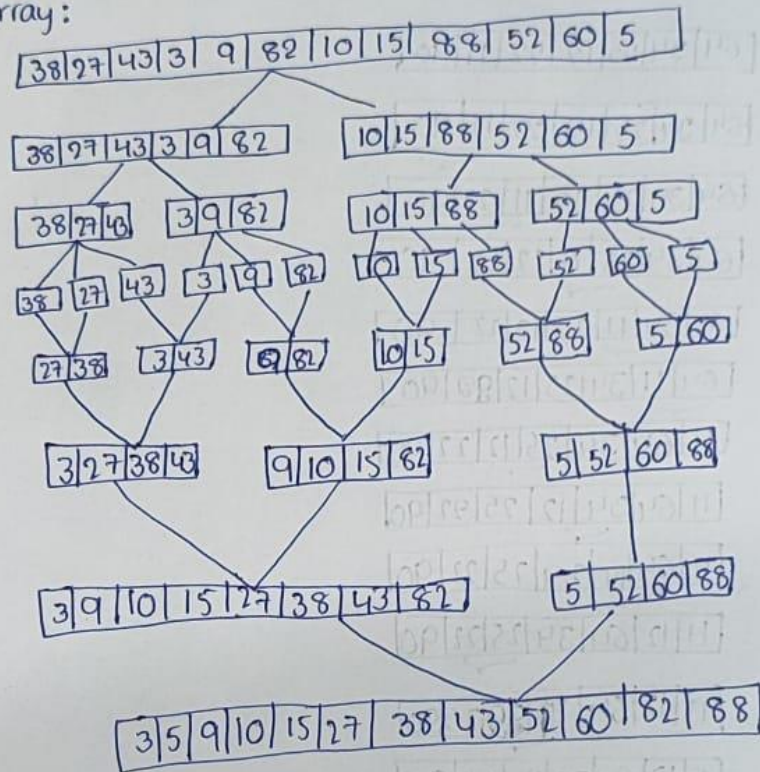 rray:
38|27|43|3|9|82|10|15|88|52|60|5
38|27|43|3|9|82 10|15|88|52|60|5
38|27|43 3|9|82 10|15|88 52|60|5
38 27 43 3 9 82 10 15 88 52 60 5
27|38 3|43 9|82 10|15 52|88 5|60
3|27|38|43 9|10|15|82 5|52|60|88
3|9|10|15|27|38|43|82 5|52|60|88
3|5|9|10|15|27|38|43|52|60|82|88